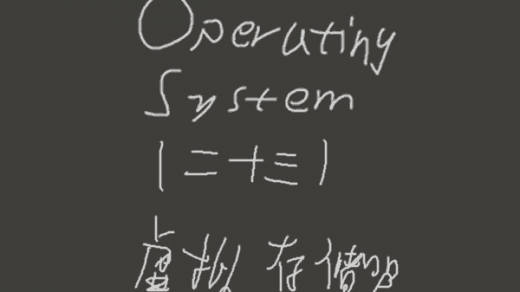 Operating
System
|二十三|
虚拟存储器